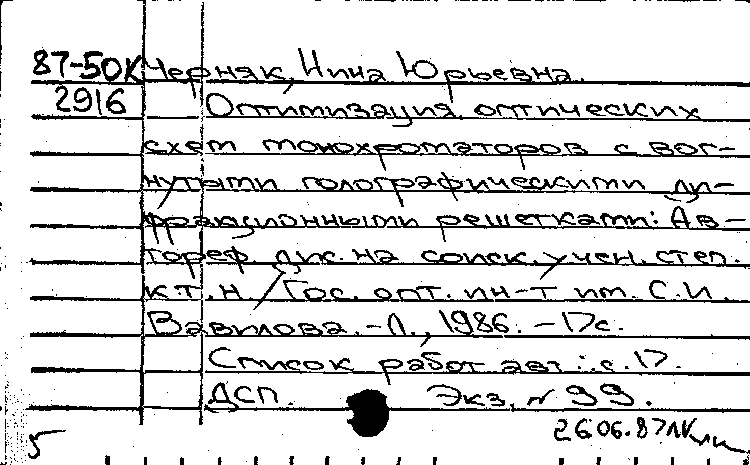 87-50К Черняк, Нина Юрьевна.
2916 Оптимизация оптических
схем монохроматоров с вог-
нутыми голографическими ди-
фракционными решетками: Ав-
тореф. дис. на соиск. учен. степ.
к.т.н. / Гос. опт. ин-т им. С.И.
Вавилова. - Л., 1986. - 17с.
Список работ авт.: с.17.
ДСП. Экз. № 99.
26.06.87
5